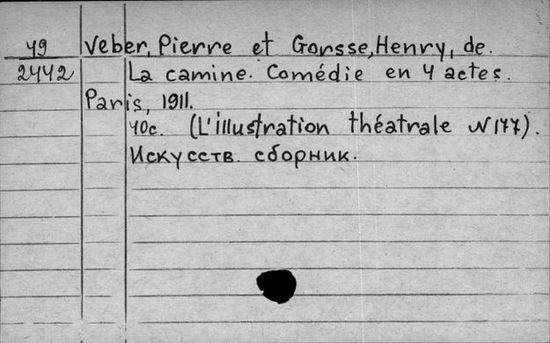 49 Veber, Pierre et Gorsse, Henry, de.
2442 La camine. Comédie en 4 actes.
Paris, 1911.
40c. (L'illustration théatrale N177).
Искусств. сборник.